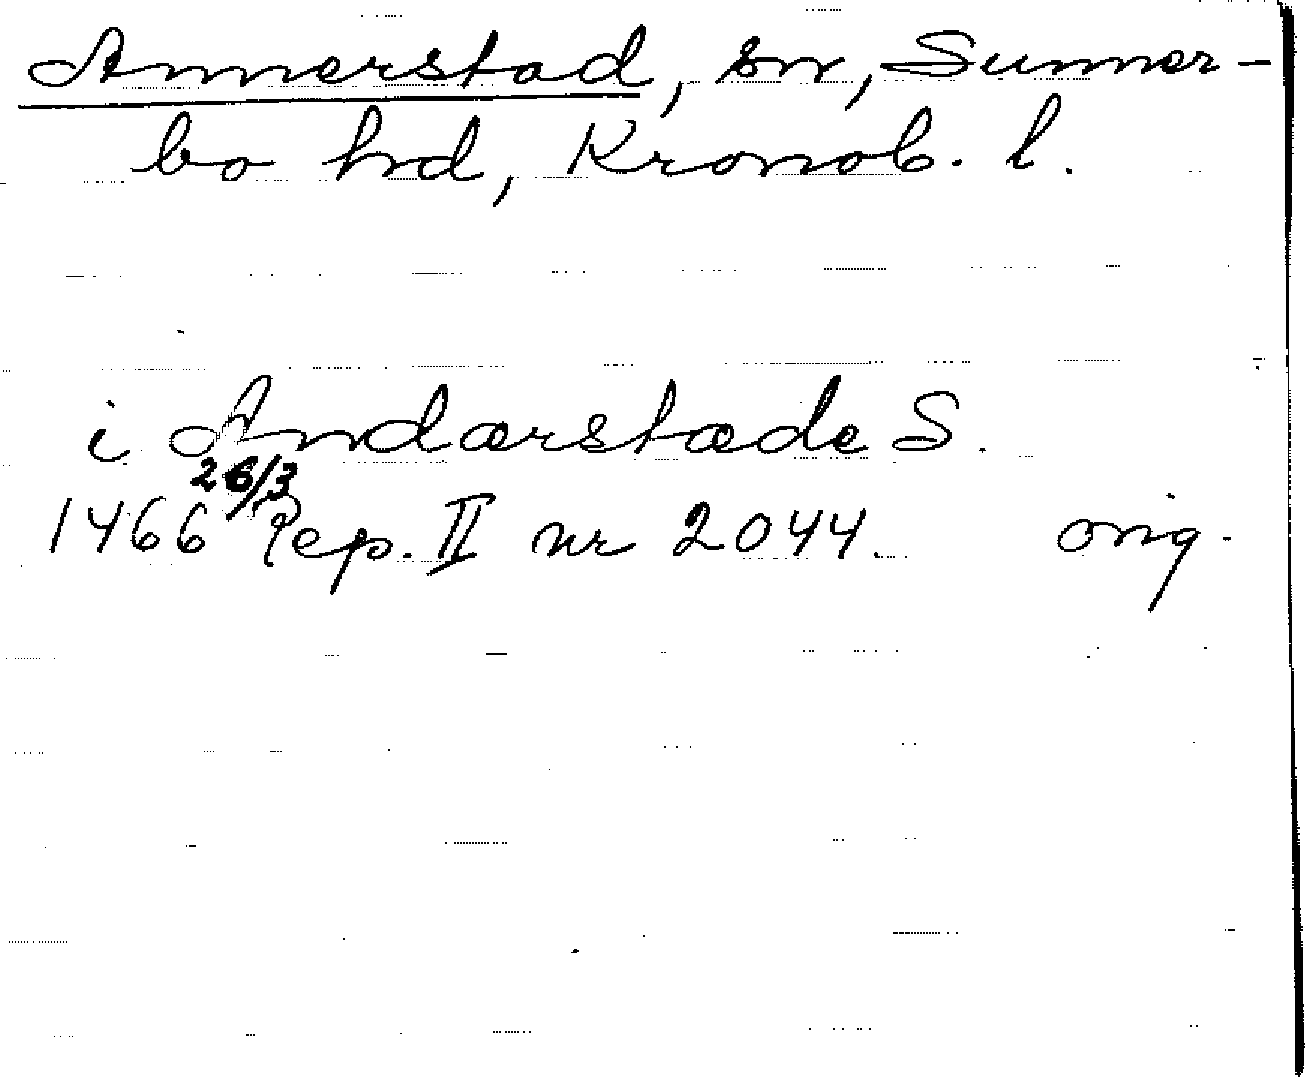 Annerstad, sn, Sunner-
bo hd, Kronob. l.
i Andærstæde S.
26/3
1466 Rep. II nr 2044. orig.